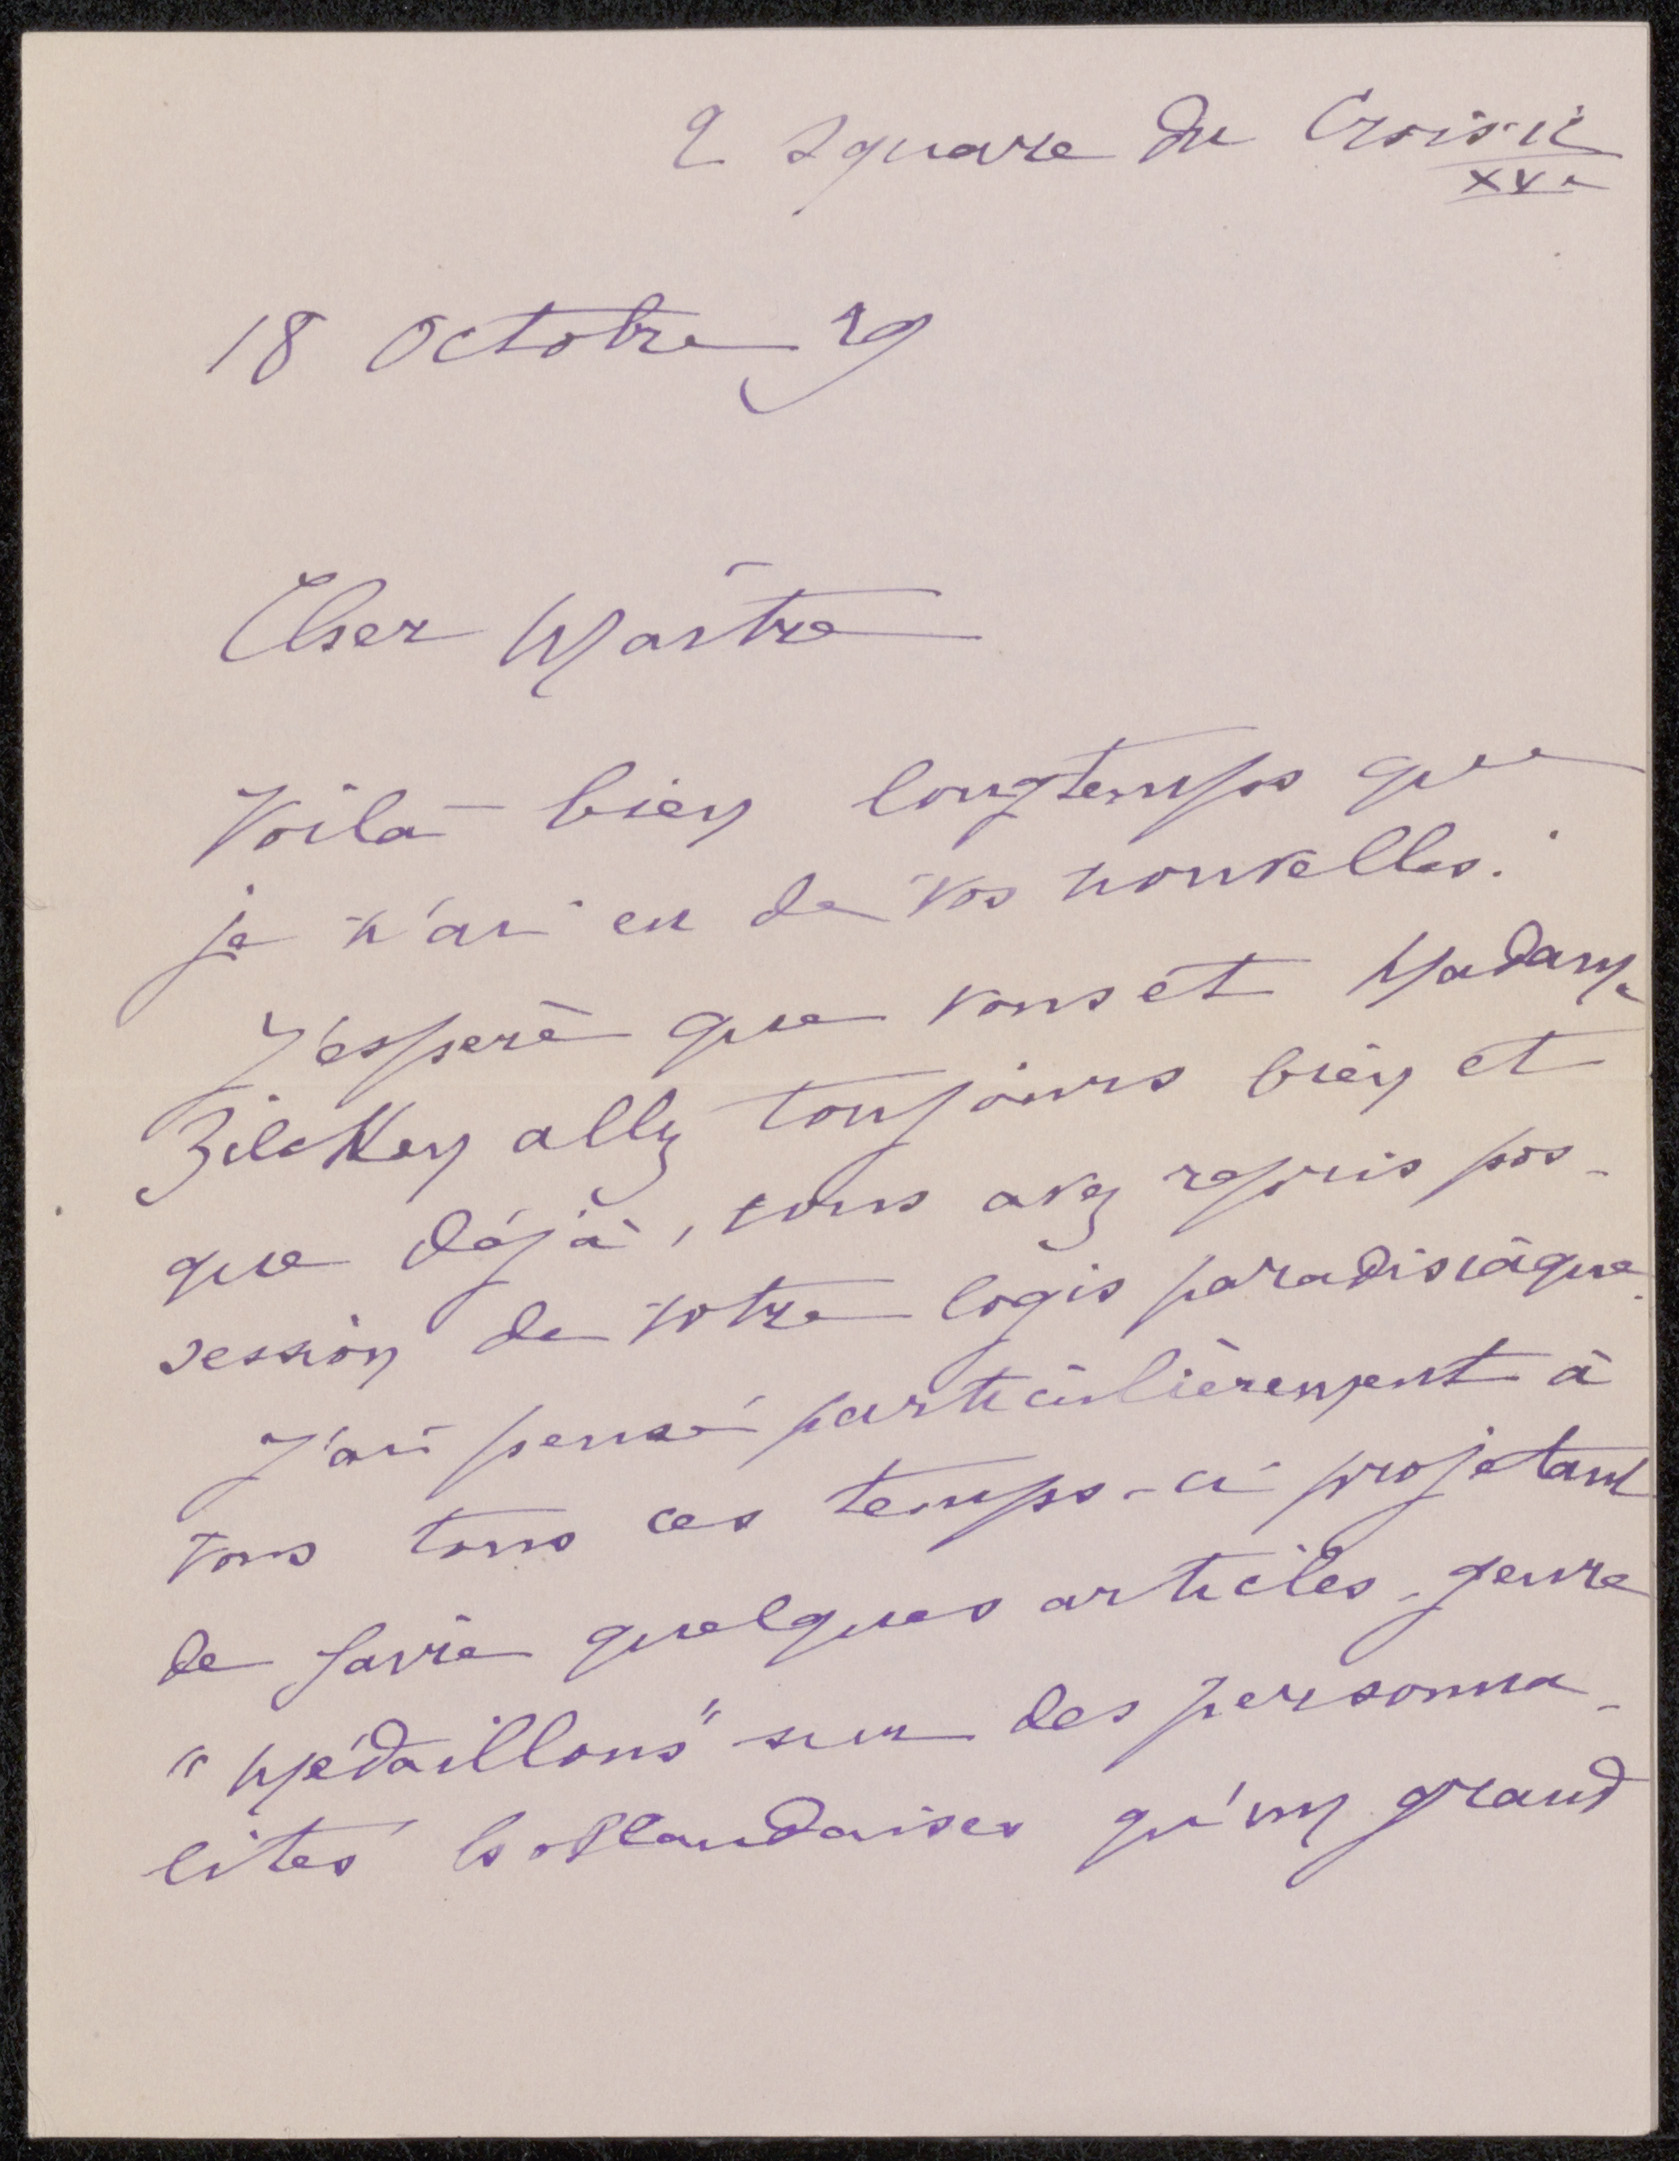 2 Square du Croisic
XVe
18 Octobre 29
Cher Maître
Voilà bien longtemps que
je n'ai eu de vos nouvelles.
J'espère que vous et Madame
Zilcken allez toujours bien et
que déjà, vous avez repris pos-
session de votre logis paradisiaque.
J'ai pensé particulièrement à
vous tous ces temps-ci projetant
de faire quelques articles, genre
"Médaillons" sur des personna-
lités hollandaises qu'un grand